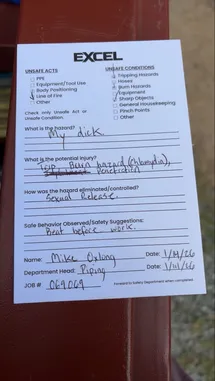 EXCEL
UNSAFE ACTS
PPE
Equipment/Tool Use
Body Positioning
Line of Fire
Other
Check only Unsafe Act or
Unsafe Condition.
UNSAFE CONDITIONS
Tripping Hazards
Hoses
Burn Hazards
Equipment
Sharp Objects
General Housekeeping
Pinch Points
Other
What is the hazard?
My dick
What is the potential injury?
Trip, Burn hazard (chlamydia),
Penetration
How was the hazard eliminated/controlled?
Sexual Release.
Safe Behavior Observed/Safety Suggestions:
Beat before work.
Name: Mike Oxlong Date: 1/14/26
Department Head: Piping Date: 1/14/26
JOB # 069069 Forward to Safety Department when completed.